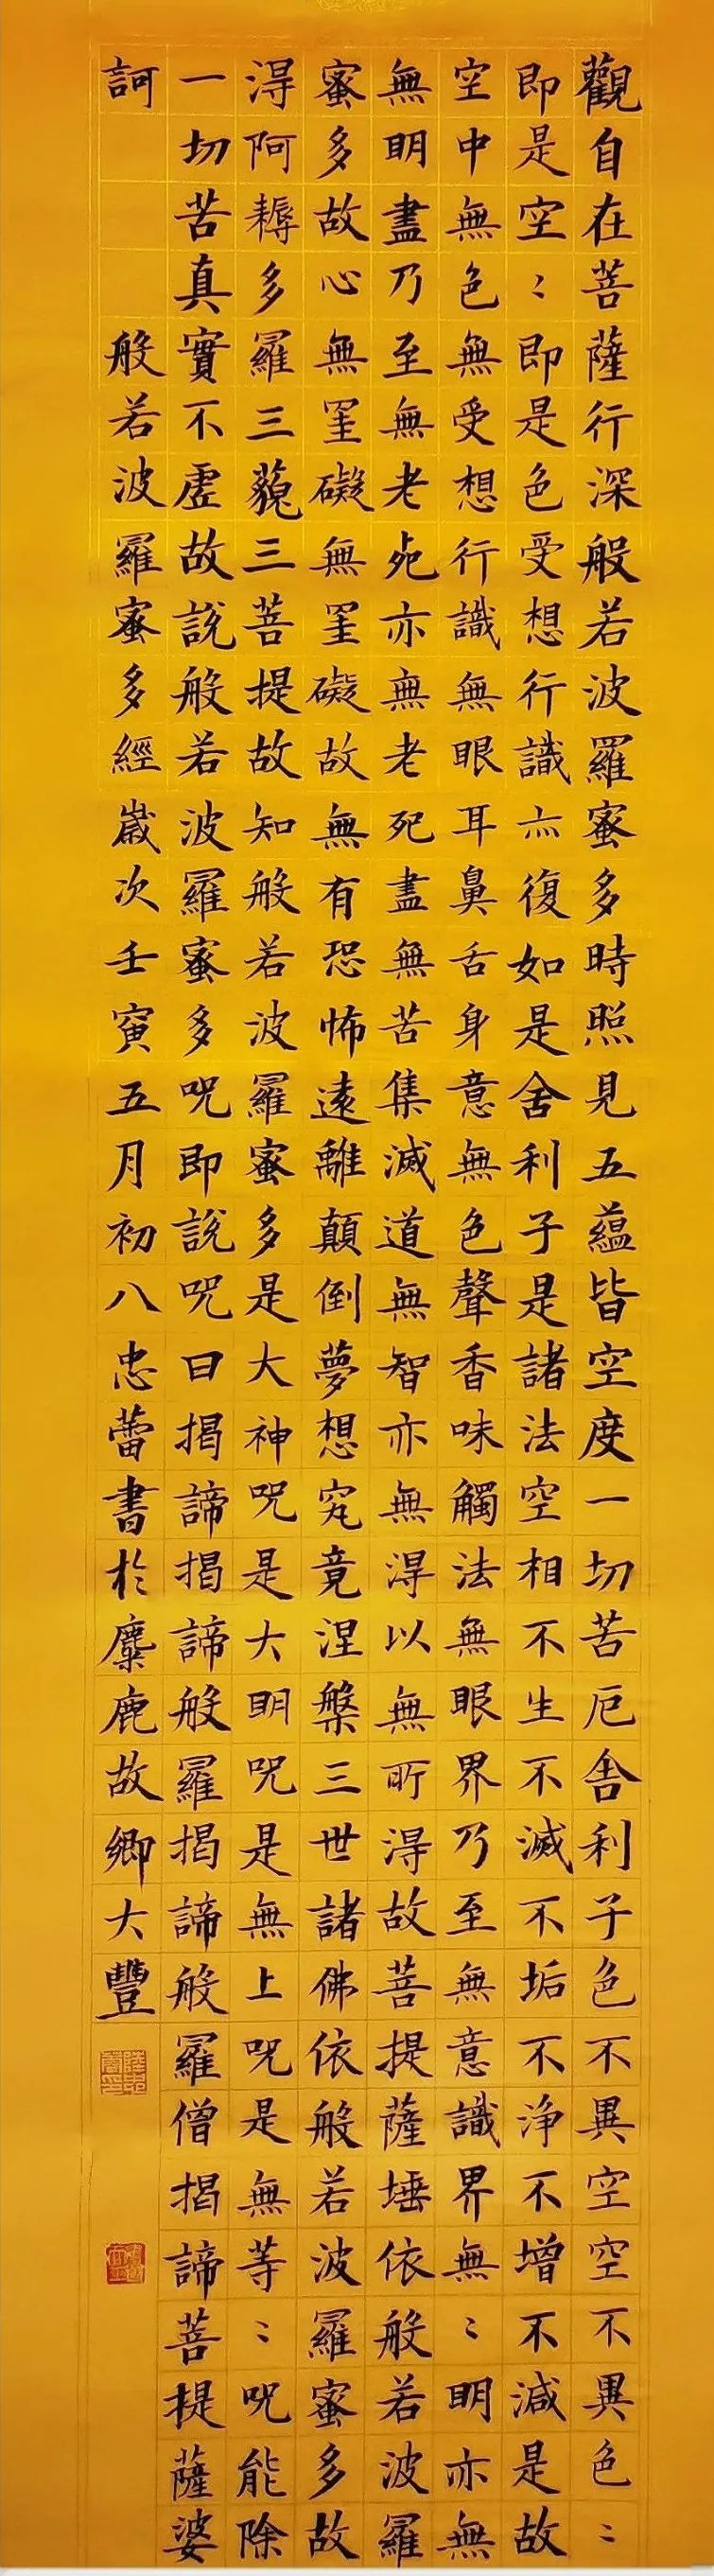 觀自在菩薩行深般若波羅蜜多時照見五蘊皆空度一切苦厄舍利子色不異空空不異色〻
即是空〻即是色受想行識亦復如是舍利子是諸法空相不生不滅不垢不淨不增不減是故
空中無色無受想行識無眼耳鼻舌身意無色聲香味觸法無眼界乃至無意識界無〻明亦無
無明盡乃至無老死亦無老死盡無苦集滅道無智亦無得以無所得故菩提薩埵依般若波羅
蜜多故心無罣礙無罣礙故無有恐怖遠離顛倒夢想究竟涅槃三世諸佛依般若波羅蜜多故
得阿耨多羅三藐三菩提故知般若波羅蜜多是大神咒是大明咒是無上咒是無等〻咒能除
一切苦真實不虛故說般若波羅蜜多咒即說咒曰揭諦揭諦般羅揭諦般羅僧揭諦菩提薩婆
訶 般若波羅蜜多經歲次壬寅五月初八忠蕾書於麋鹿故鄉大豐